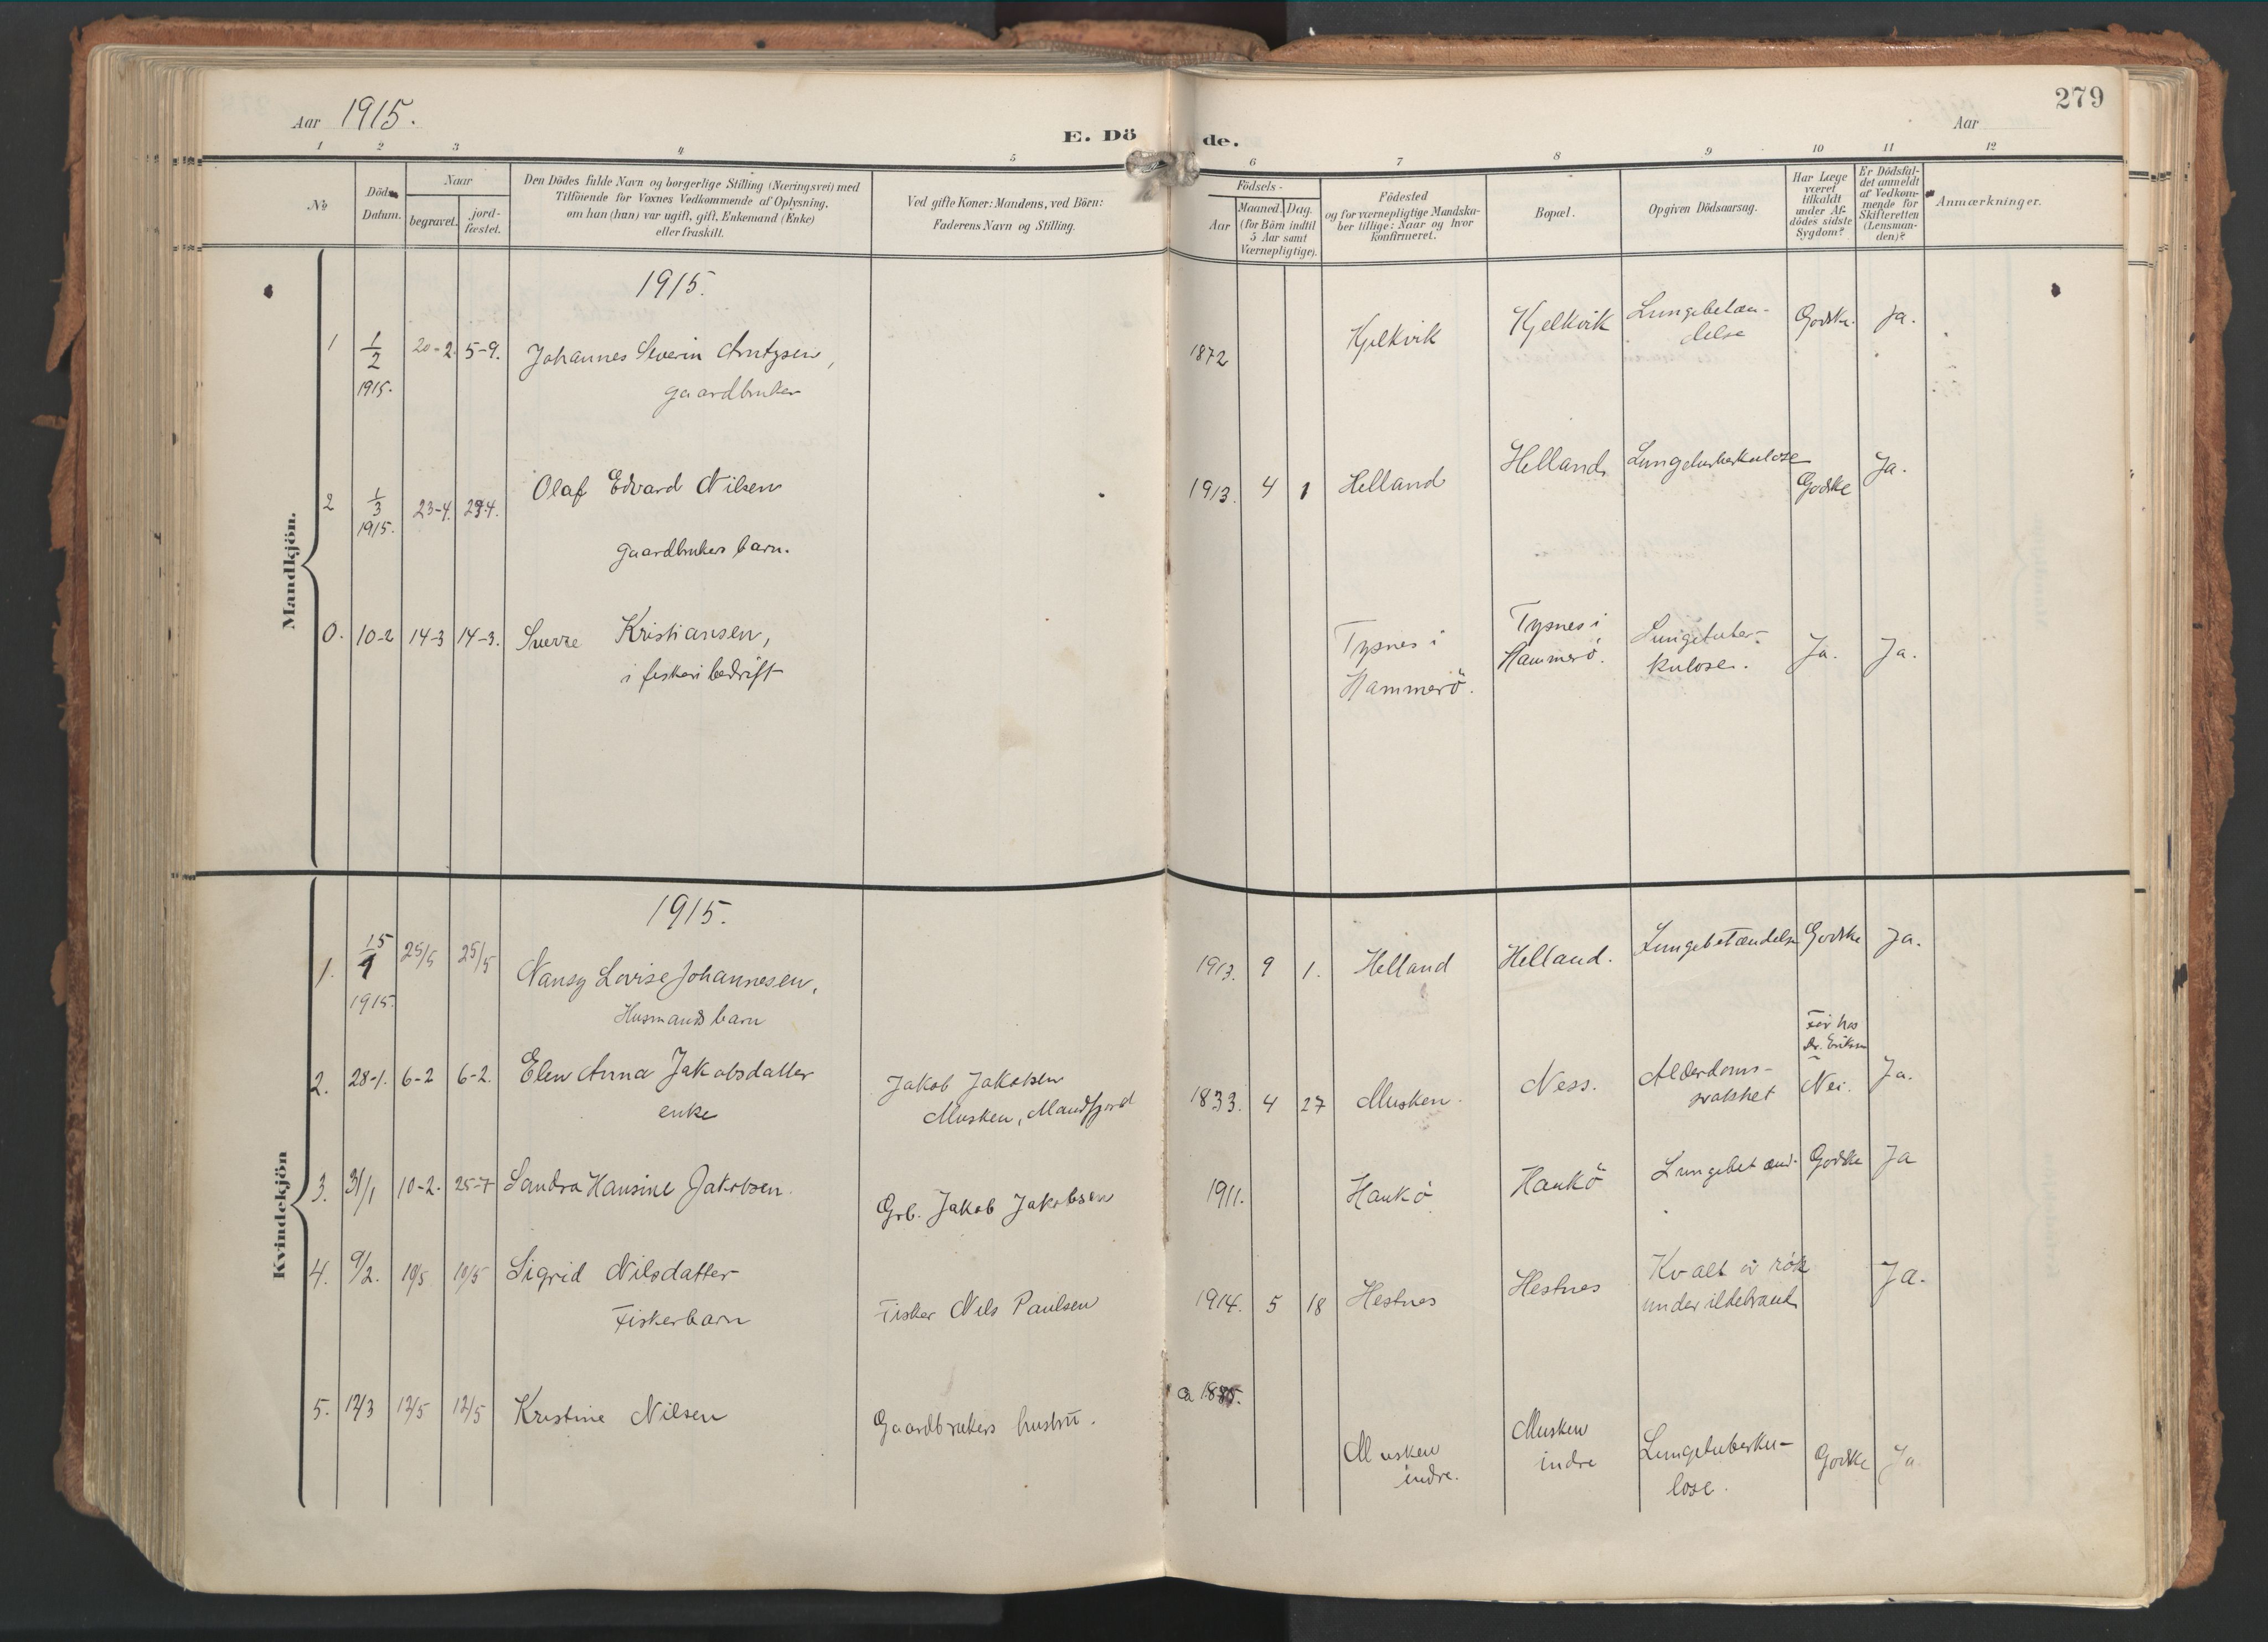 Aar 1915.
E. Döde.
279
Aar
1 2 3 4 5 6 7 8 9 10 11 12
No
Döds-Datum.
Naar
begravet.
jord-fæstet.
Den Dödes fulde Navn og borgerlige Stilling (Næringsvei) med
Tilföiende for Voxnes Vedkommende af Oplysning,
om han (hun) var ugift, gift, Enkemand (Enke)
eller fraskilt.
Ved gifte Koner: Mandens, ved Börn:
Faderens Navn og Stilling.
Födsels-
Aar
Maaned. Dag.
(for Börn indtil
5 Aar samt
Værnepligtige).
Födested
og for værnepligtige Mandska-
ber tillige: Naar og hvor
konfirmeret.
Bopæl.
Opgiven Dödsaarsag.
Har Læge
været
tilkaldt
under Af-
dödes sidste
Sygdom?
Er Dödsfal-
det anmeldt
af Vedkom-
mende for
Skifteretten
(Lensman-
den)?
Anmærkninger.
Mandkjön.
1915.
1 1/2 1915. 20-2. 5-9. Johannes Severin Arntzsen,
gaardbruker
1872 Kjelkvik Kjelkvik Lungebetæn-
delse Godske. Ja.
2 1/3 1915. 23-4. 23-4. Olaf Edvard Nilsen
gaardbrukers barn.
1913. 4 1 Helland Helland Lungetuberkulose Godske Ja.
0. 10-2 14-3 14-3. Sverre Kristiansen,
i fiskeribedrift
Tysnes i
Hammerö.
Tysnes i
Hammerö.
Lungetuber-
kulose. Ja. Ja.
Kvindekjön
1915.
1. 15/1 1915. 25/5 25/5 Nansy Lovise Johannesen,
Husmands barn
1913. 9 1. Helland Helland. Lungebetændelse Godske Ja.
2. 28-1. 6-2 6-2. Elen Anna Jakobsdatter
enke
Jakob Jakobsen
Musken, Mandfjord
1833. 4 27 Musken. Ness. Alderdoms-
svakhet
Før hos
dr. Eriksen
Nei. Ja.
3. 31/1 10-2. 25-7 Sandra Hansine Jakobsen.
Grb. Jakob Jakobsen
1911. Haukö Haukö Lungebetænd. Godske Ja
4. 9/2. 10/5 10/5 Sigrid Nilsdatter
Fiskerbarn
Fisker Nils Paulsen
1914. 5 18 Hestnes Hestnes Kvalt i rök
under ildebrand Ja.
5. 12/3 12/5 12/5 Kristine Nilsen
Gaardbrukers hustru.
ca 1885.
Musken
indre.
Musken
indre
Lungetuberku-
lose. Godske Ja